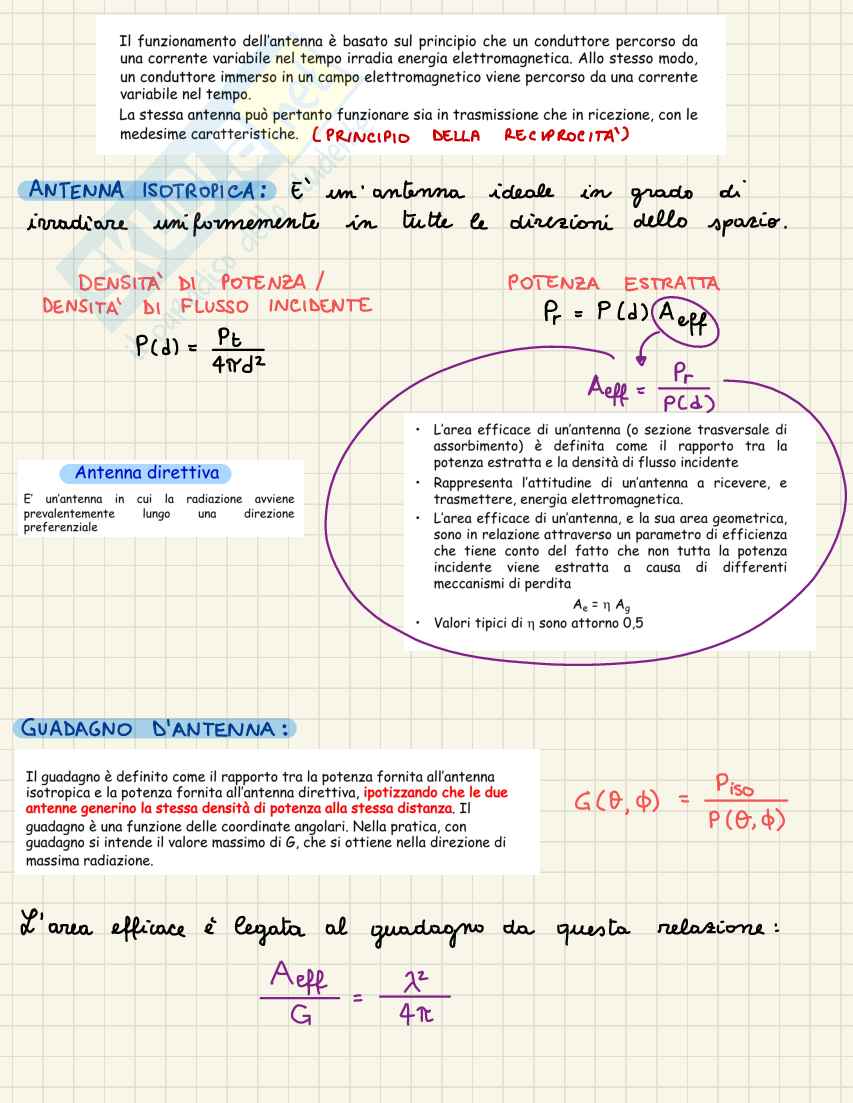 Il funzionamento dell'antenna è basato sul principio che un conduttore percorso da
una corrente variabile nel tempo irradia energia elettromagnetica. Allo stesso modo,
un conduttore immerso in un campo elettromagnetico viene percorso da una corrente
variabile nel tempo.
La stessa antenna può pertanto funzionare sia in trasmissione che in ricezione, con le
medesime caratteristiche. (PRINCIPIO DELLA RECIPROCITA')
ANTENNA ISOTROPICA: E' un'antenna ideale in grado di
irradiare uniformemente in tutte le direzioni dello spazio.
DENSITA' DI POTENZA /
DENSITA' DI FLUSSO INCIDENTE
P(d) = Pt / 4πd²
POTENZA ESTRATTA
Pr = P(d) Aeff
Aeff = Pr / P(d)
• L'area efficace di un'antenna (o sezione trasversale di
assorbimento) è definita come il rapporto tra la
potenza estratta e la densità di flusso incidente
• Rappresenta l'attitudine di un'antenna a ricevere, e
trasmettere, energia elettromagnetica.
• L'area efficace di un'antenna, e la sua area geometrica,
sono in relazione attraverso un parametro di efficienza
che tiene conto del fatto che non tutta la potenza
incidente viene estratta a causa di differenti
meccanismi di perdita
Ae = η Ag
• Valori tipici di η sono attorno 0,5
Antenna direttiva
E' un'antenna in cui la radiazione avviene
prevalentemente lungo una direzione
preferenziale
GUADAGNO D'ANTENNA:
Il guadagno è definito come il rapporto tra la potenza fornita all'antenna
isotropica e la potenza fornita all'antenna direttiva, ipotizzando che le due
antenne generino la stessa densità di potenza alla stessa distanza. Il
guadagno è una funzione delle coordinate angolari. Nella pratica, con
guadagno si intende il valore massimo di G, che si ottiene nella direzione di
massima radiazione.
G(θ,ϕ) = Piso / P(θ,ϕ)
L'area efficace è legata al guadagno da questa relazione:
Aeff / G = λ² / 4π